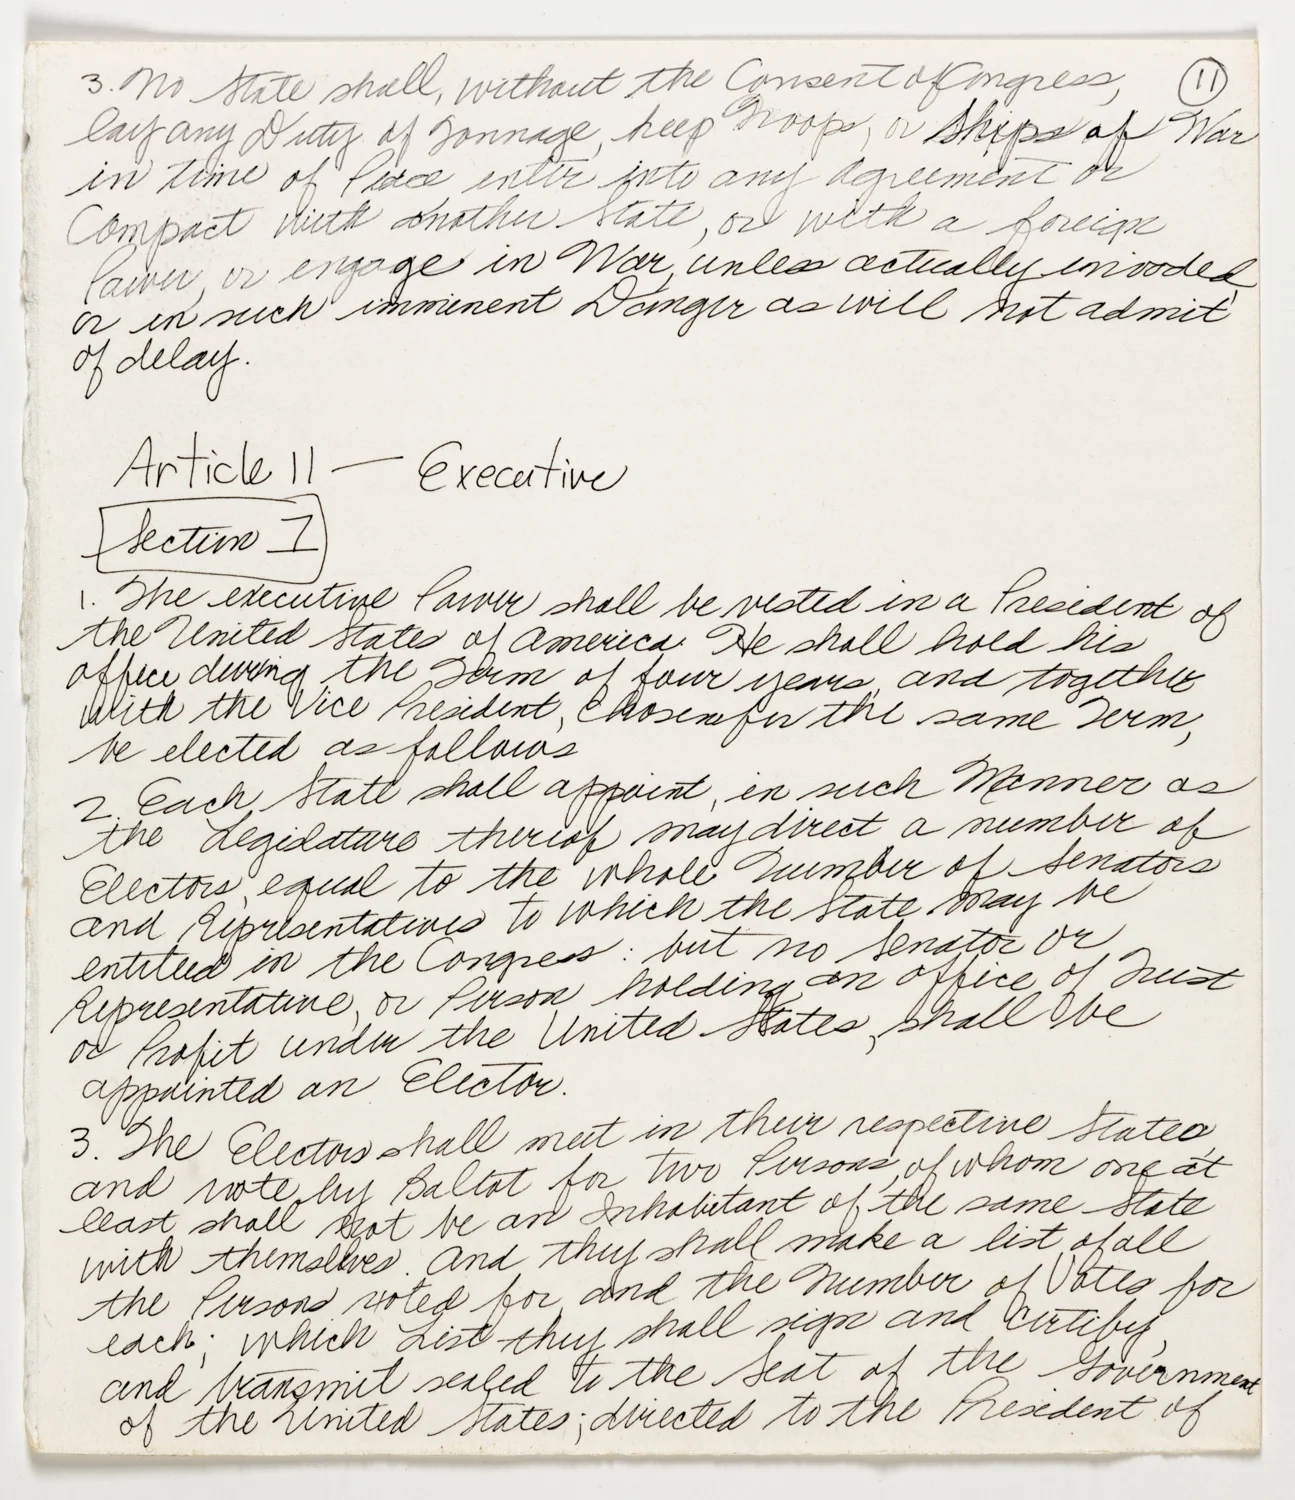 3. No State shall, without the Consent of Congress,
11
lay any Duty of Tonnage, keep Troops, or Ships of War
in time of Peace enter into any Agreement or
Compact with another State, or with a foreign
Power, or engage in War, unless actually invaded,
or in such imminent Danger as will not admit
of delay.
Article II — Executive
Section I
1. The executive Power shall be vested in a President of
the United States of America. He shall hold his
office during the Term of four years, and together
with the Vice President, chosen for the same Term,
be elected as follows
2. Each State shall appoint, in such Manner as
the Legislature thereof may direct a number of
Electors, equal to the whole Number of Senators
and Representatives to which the State may be
entitled in the Congress: but no Senator or
Representative, or Person holding an office of Trust
or Profit under the United States, shall be
appointed an Elector.
3. The Electors shall meet in their respective States
and vote by Ballot for two Persons, of whom one at
least shall not be an Inhabitant of the same State
with themselves. And they shall make a list of all
the Persons voted for and the Number of Votes for
each; which List they shall sign and certify,
and transmit sealed to the Seat of the Government
of the United States; directed to the President of